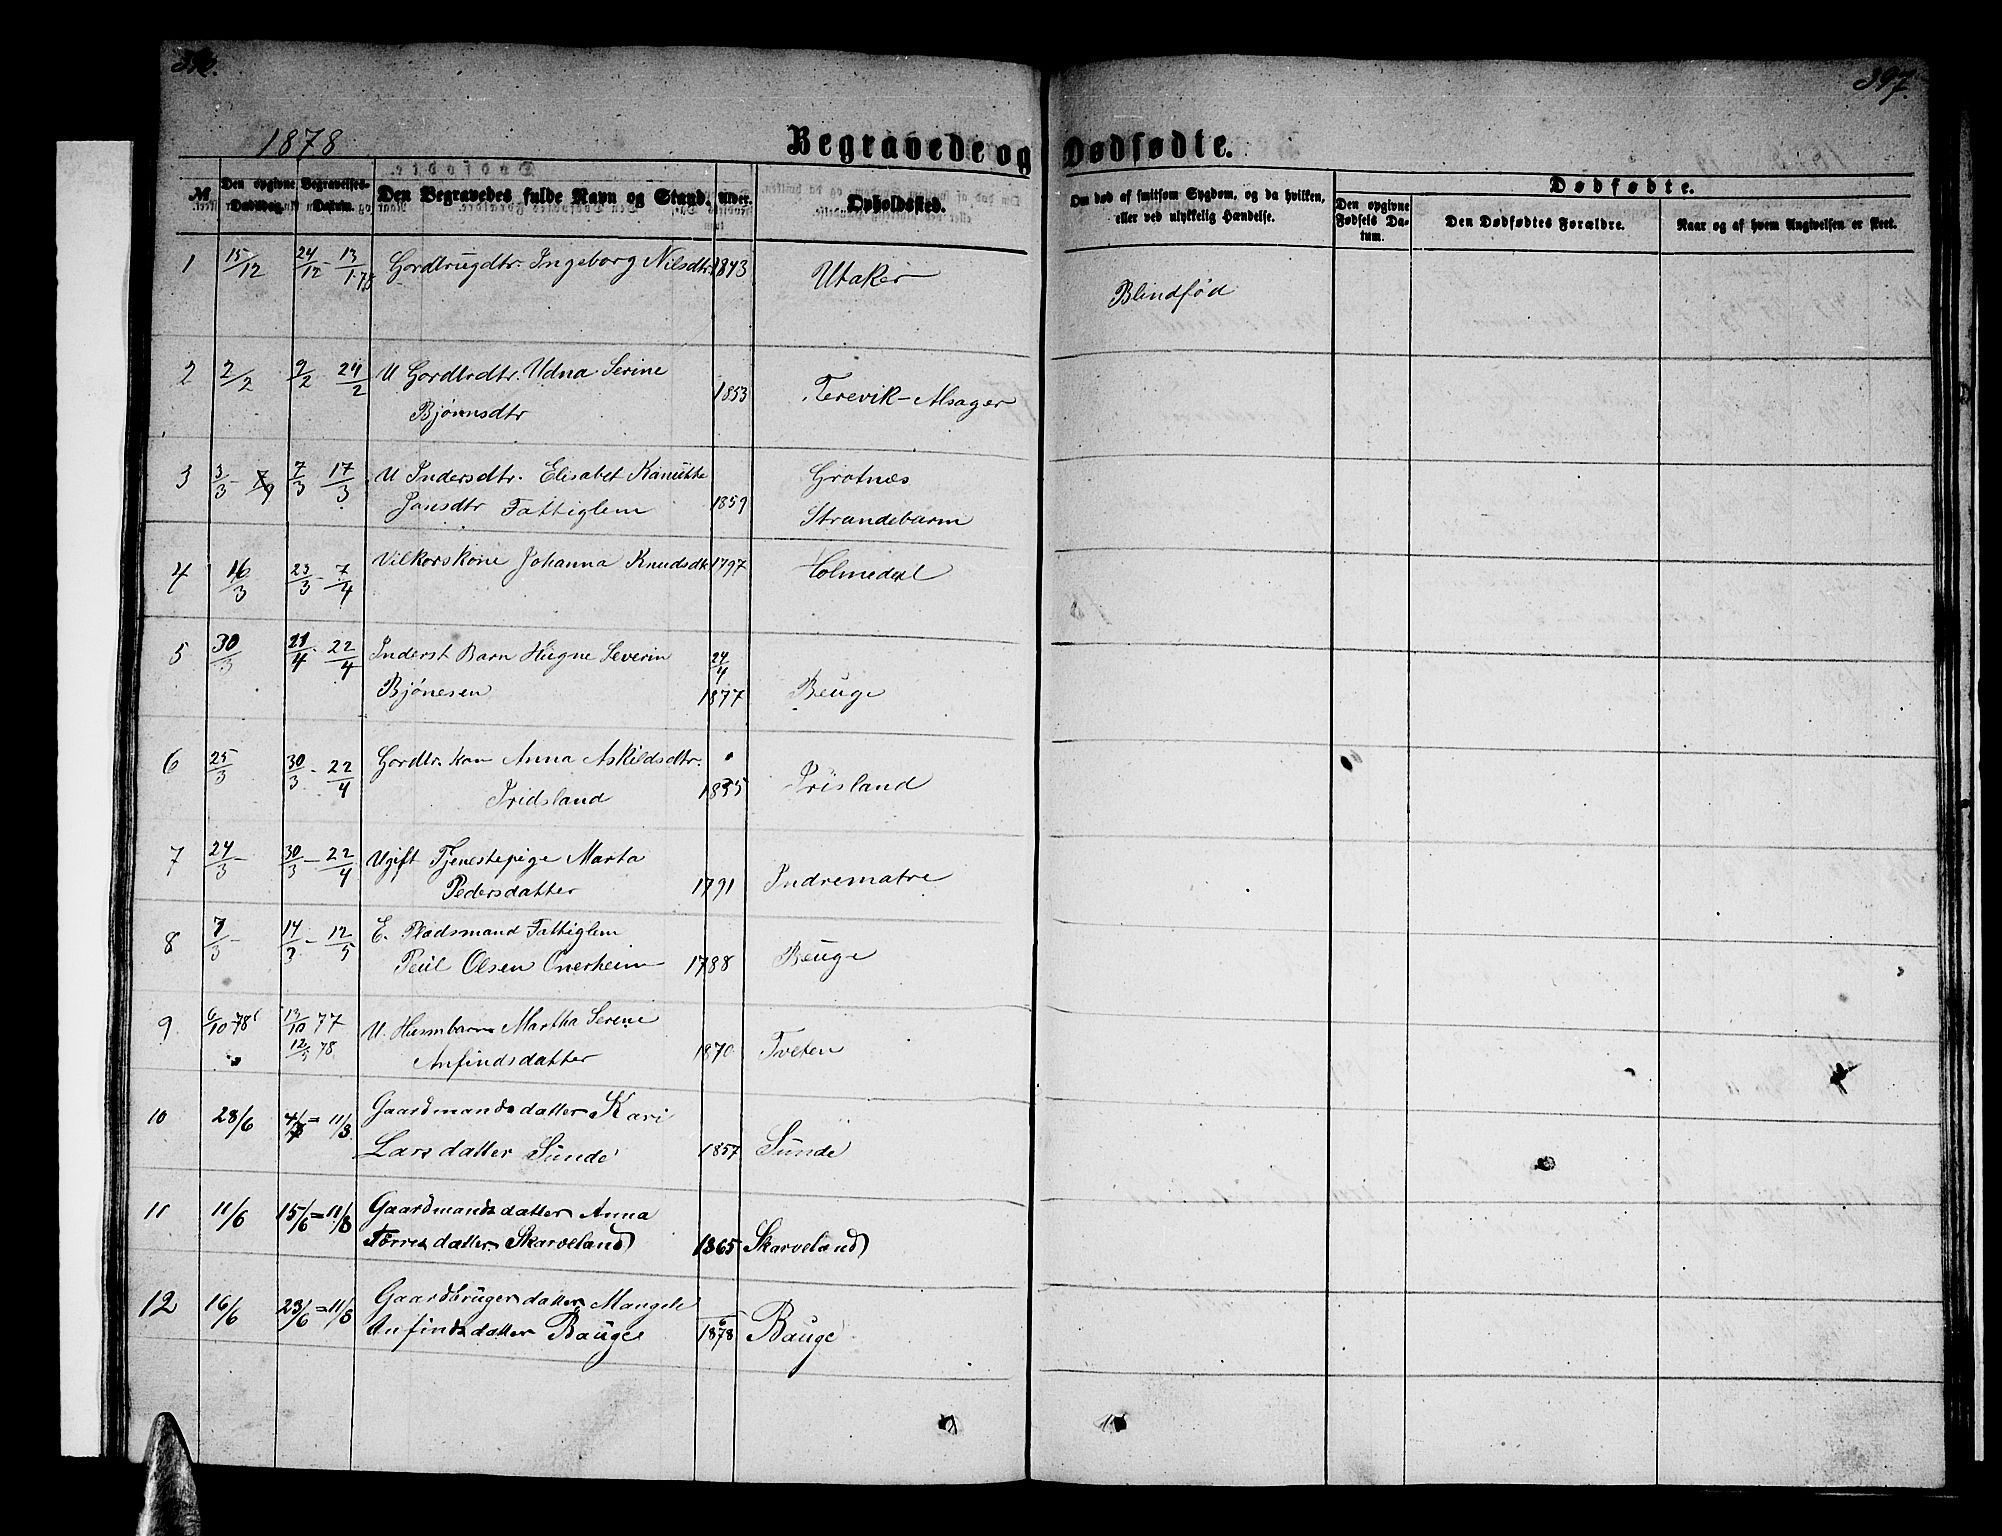 397.
1878
Begravede og Dødfødte.
Den opgivne Dødsdag.
Begravelses-Datum.
Den Begravedes fulde Navn og Stand.
Alder.
Opholdssted.
Om død af smitsom Sygdom, og da hvilken, eller ved ulykkelig Hændelse.
Dødfødte.
Den opgivne Fødsels Datum.
Den Dødfødtes Forældre.
Naar og af hvem Angivelsen er skeet.
1 15/12 24/12 - 13/1.78 Gordbrugdtr. Ingeborg Nilsdtr. 1843 Utaker Blindfød
2 2/2 9/2 24/2 U Gordbrdtr. Udna Serine 1853 Terevik-Alsager
Bjørnsdtr
3 3/3 7/3 17/3 U Indersdtr. Elisabet Kanutte Grotnæs
Jonsdtr Fattiglem 1859 Strandebarm
4 16/3 23/3 - 7/4 Vilkorskone Johanna Knudsdtr 1797 Holmedal
5 30/3 21/4 - 22/4 Inderst Barn Hugne Severin 24/4
Bjønesen 1877 Beuge
6 25/3 30/3 - 22/4 Gordbr. kon Anna Askildsdtr.
Fridsland 1835 Frisland
7 24/3 30/3 - 22/4 Ugift Tjenestepige Marta
Pedersdatter 1791 Indrematre
8 7/3 14/3 - 12/5 E. Pladsmand Fattiglem
Peul Olsen Onerheim 1788 Beuge
9 6/10 78 13/10 77 U. Husmbarn Martha Serine
12/5 78 Anfindsdatter 1870 Tveten
10 28/6 = 11/8 Gaardmandsdatter Kari
Larsdatter Sunde 1857 Sunde
11 11/6 15/6 = 11/8 Gaardmandsdatter Anna
Torresdatter Skarveland 1865 Skarveland
12 16/6 23/6 = 11/8 Gaardbrugersdatter Mangele
Anfindsdatter Bauge 1878 Bauge